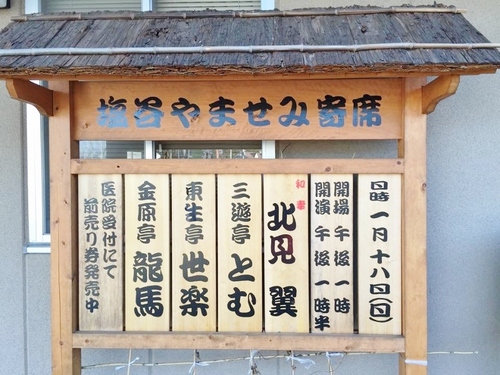 塩谷やませみ寄席
日時 一月 十八日(日)
開場 午後 一時
開演 午後 一時半
和妻
北見 翼
三遊亭 とむ
東生亭 世楽
金原亭 龍馬
医院受付にて
前売り券発売中